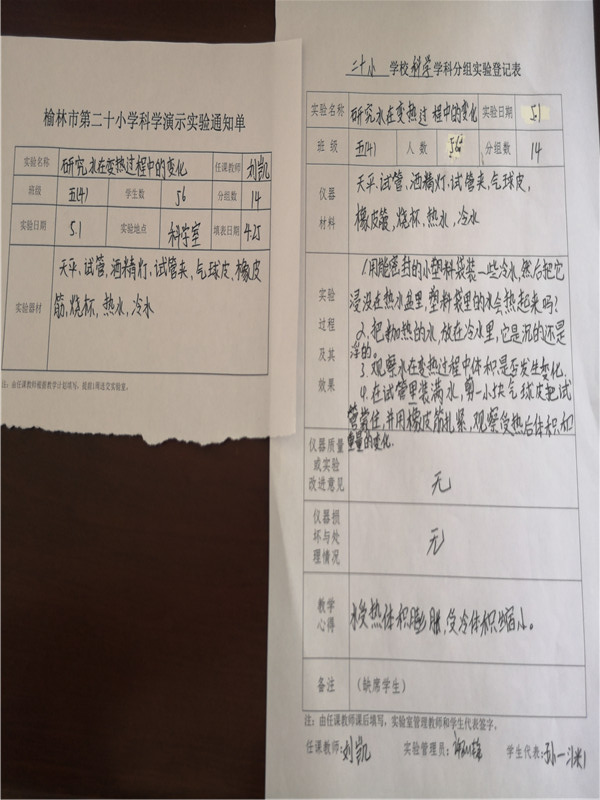 榆林市第二十小学科学演示实验通知单
实验名称 研究水在变热过程中的变化 任课教师 刘凯
班级 五(4) 学生数 56 分组数 14
实验日期 5.1 实验地点 科学室 填表日期 4.25
天平、试管、酒精灯、试管夹、气球皮、橡皮
实验器材 筋、烧杯、热水、冷水
注：由任课教师根据教学计划填写，提前1周送交实验室。
二十小 学校 科学 学科分组实验登记表
实验名称 研究水在变热过程中的变化 实验日期 5.1
班级 五(4) 人数 56 分组数 14
仪器 天平、试管、酒精灯、试管夹、气球皮、
材料 橡皮筋、烧杯、热水、冷水
1.用能密封的小塑料袋装一些冷水,然后把它
实验 浸没在热水盆里,塑料袋里的水会热起来吗?
过程 2.把加热的水,放在冷水里,它是沉的还是
及其 浮的。
3.观察水在变热过程中体积是否发生变化.
效果 4.在试管里装满水,剪一小块气球皮把试
管套住,并用橡皮筋扎紧,观察受热后体积和
重量的变化.
仪器质量
或实验
改进意见 无
仪器损
坏与处 无
理情况
教学
心得 水受热体积膨胀,受冷体积缩小。
备注 （缺席学生）
注：由任课教师课后填写，实验室管理教师和学生代表签字。
任课教师: 刘凯 实验管理员: 学生代表: 孙一